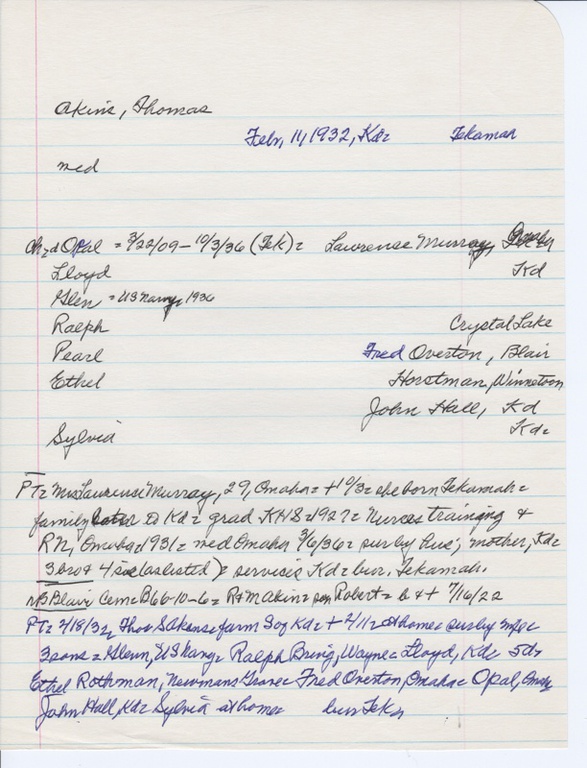 Akins, Thomas
Feb, 11, 1932, Kd= Tekamah
med
Ch=d Opal = 3/22/09 - 10/3/36 (Tek) = Lawrense Murray,
Lloyd Kd
Glen = US Navy, 1936
Ralph Crystal Lake
Pearl Fred Overton, Blair
Ethel Horstman, Winnetoon
John Hall, Kd
Sylvia Kd=
PT= Mrs Lawrense Murray, 27, Omaha = + 10/3 = she born Tekamah =
family later to Kd = grad KHS = 1927 = Nurses training &
RN, Omaha = 1931 = med Omaha 3/6/36 = sur by hus; mother, Kd=
3 bro & 4 sis (as listed) = services Kd = bur. Tekamah.
NB Blair Cem = B66-10-6 = R + M Akin = son Robert = b & + 7/16/22
PT= 2/18/32, Thos S Akens = farm So Kd = + 2/11 = at home = sur by
3 sons = Glenn, US Navy = Ralph Bring, Wayne = Lloyd, Kd = 5d =
Ethel Rothman, Newmans Grove = Fred Overton, Omaha = Opal,
John Hall, Kd = Sylvia at home = bur Tek